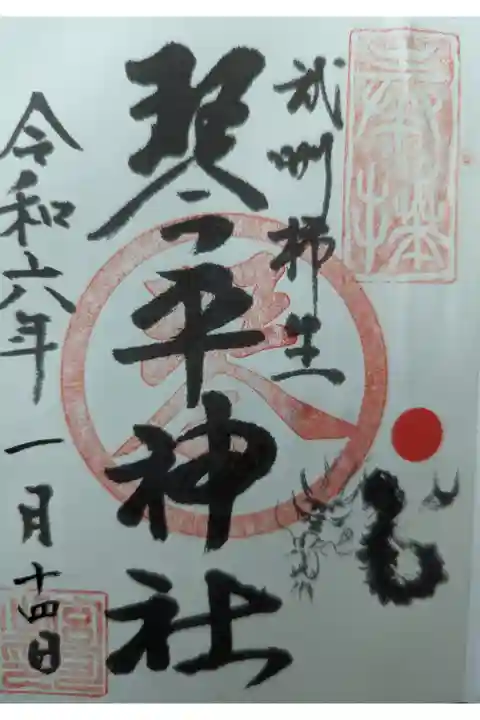 奉拝
武州柿生
琴平神社
令和六年一月十四日